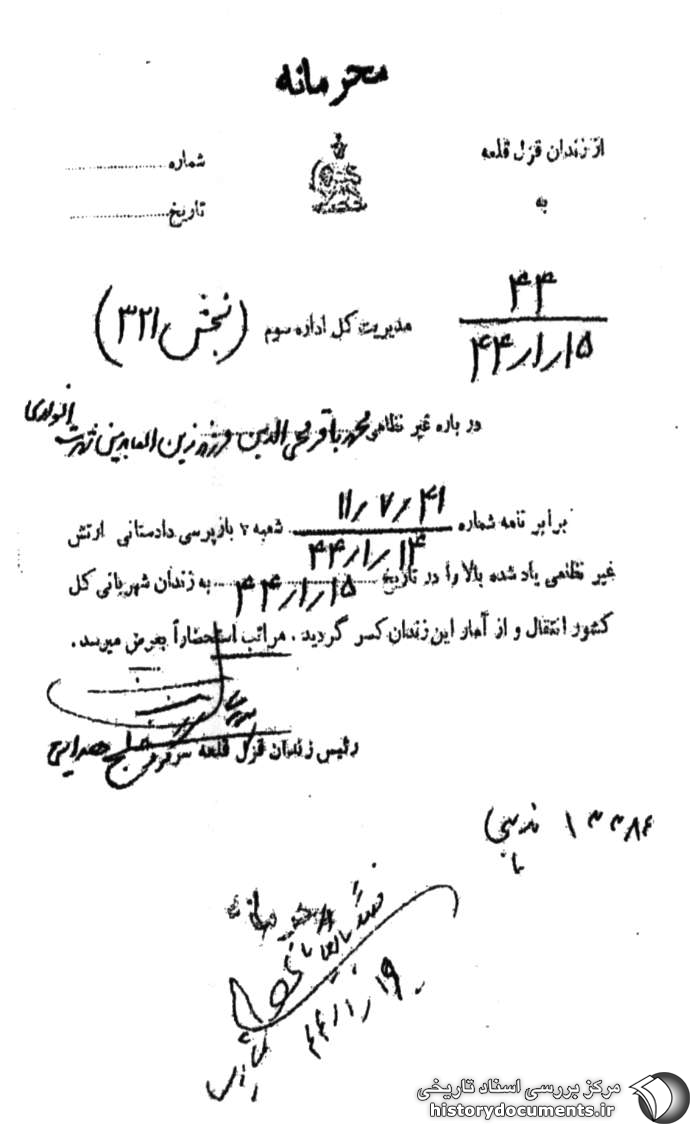 محرمانه
از زندان قزل قلعه
به
شماره
تاریخ
۴۴
۱۵/۱/۴۴
مدیریت کل اداره سوم (بخش ۳۲۱)
در باره غیر نظامی محمد باقر محی الدین فرزند زین العابدین شهرت انواری
برابر نامه شماره ۱۱/۷/۴۱ شعبه ۷ بازپرسی دادستانی ارتش
۱۴/۱/۴۴
غیر نظامی یاد شده بالا را در تاریخ ۱۵/۱/۴۴ به زندان شهربانی کل
کشور انتقال و از آمار این زندان کسر گردید. مراتب استحضاراً بعرض میرسد.
رئیس زندان قزل قلعه
۱۹/۱/۴۴
مرکز بررسی اسناد تاریخی
historydocuments.ir